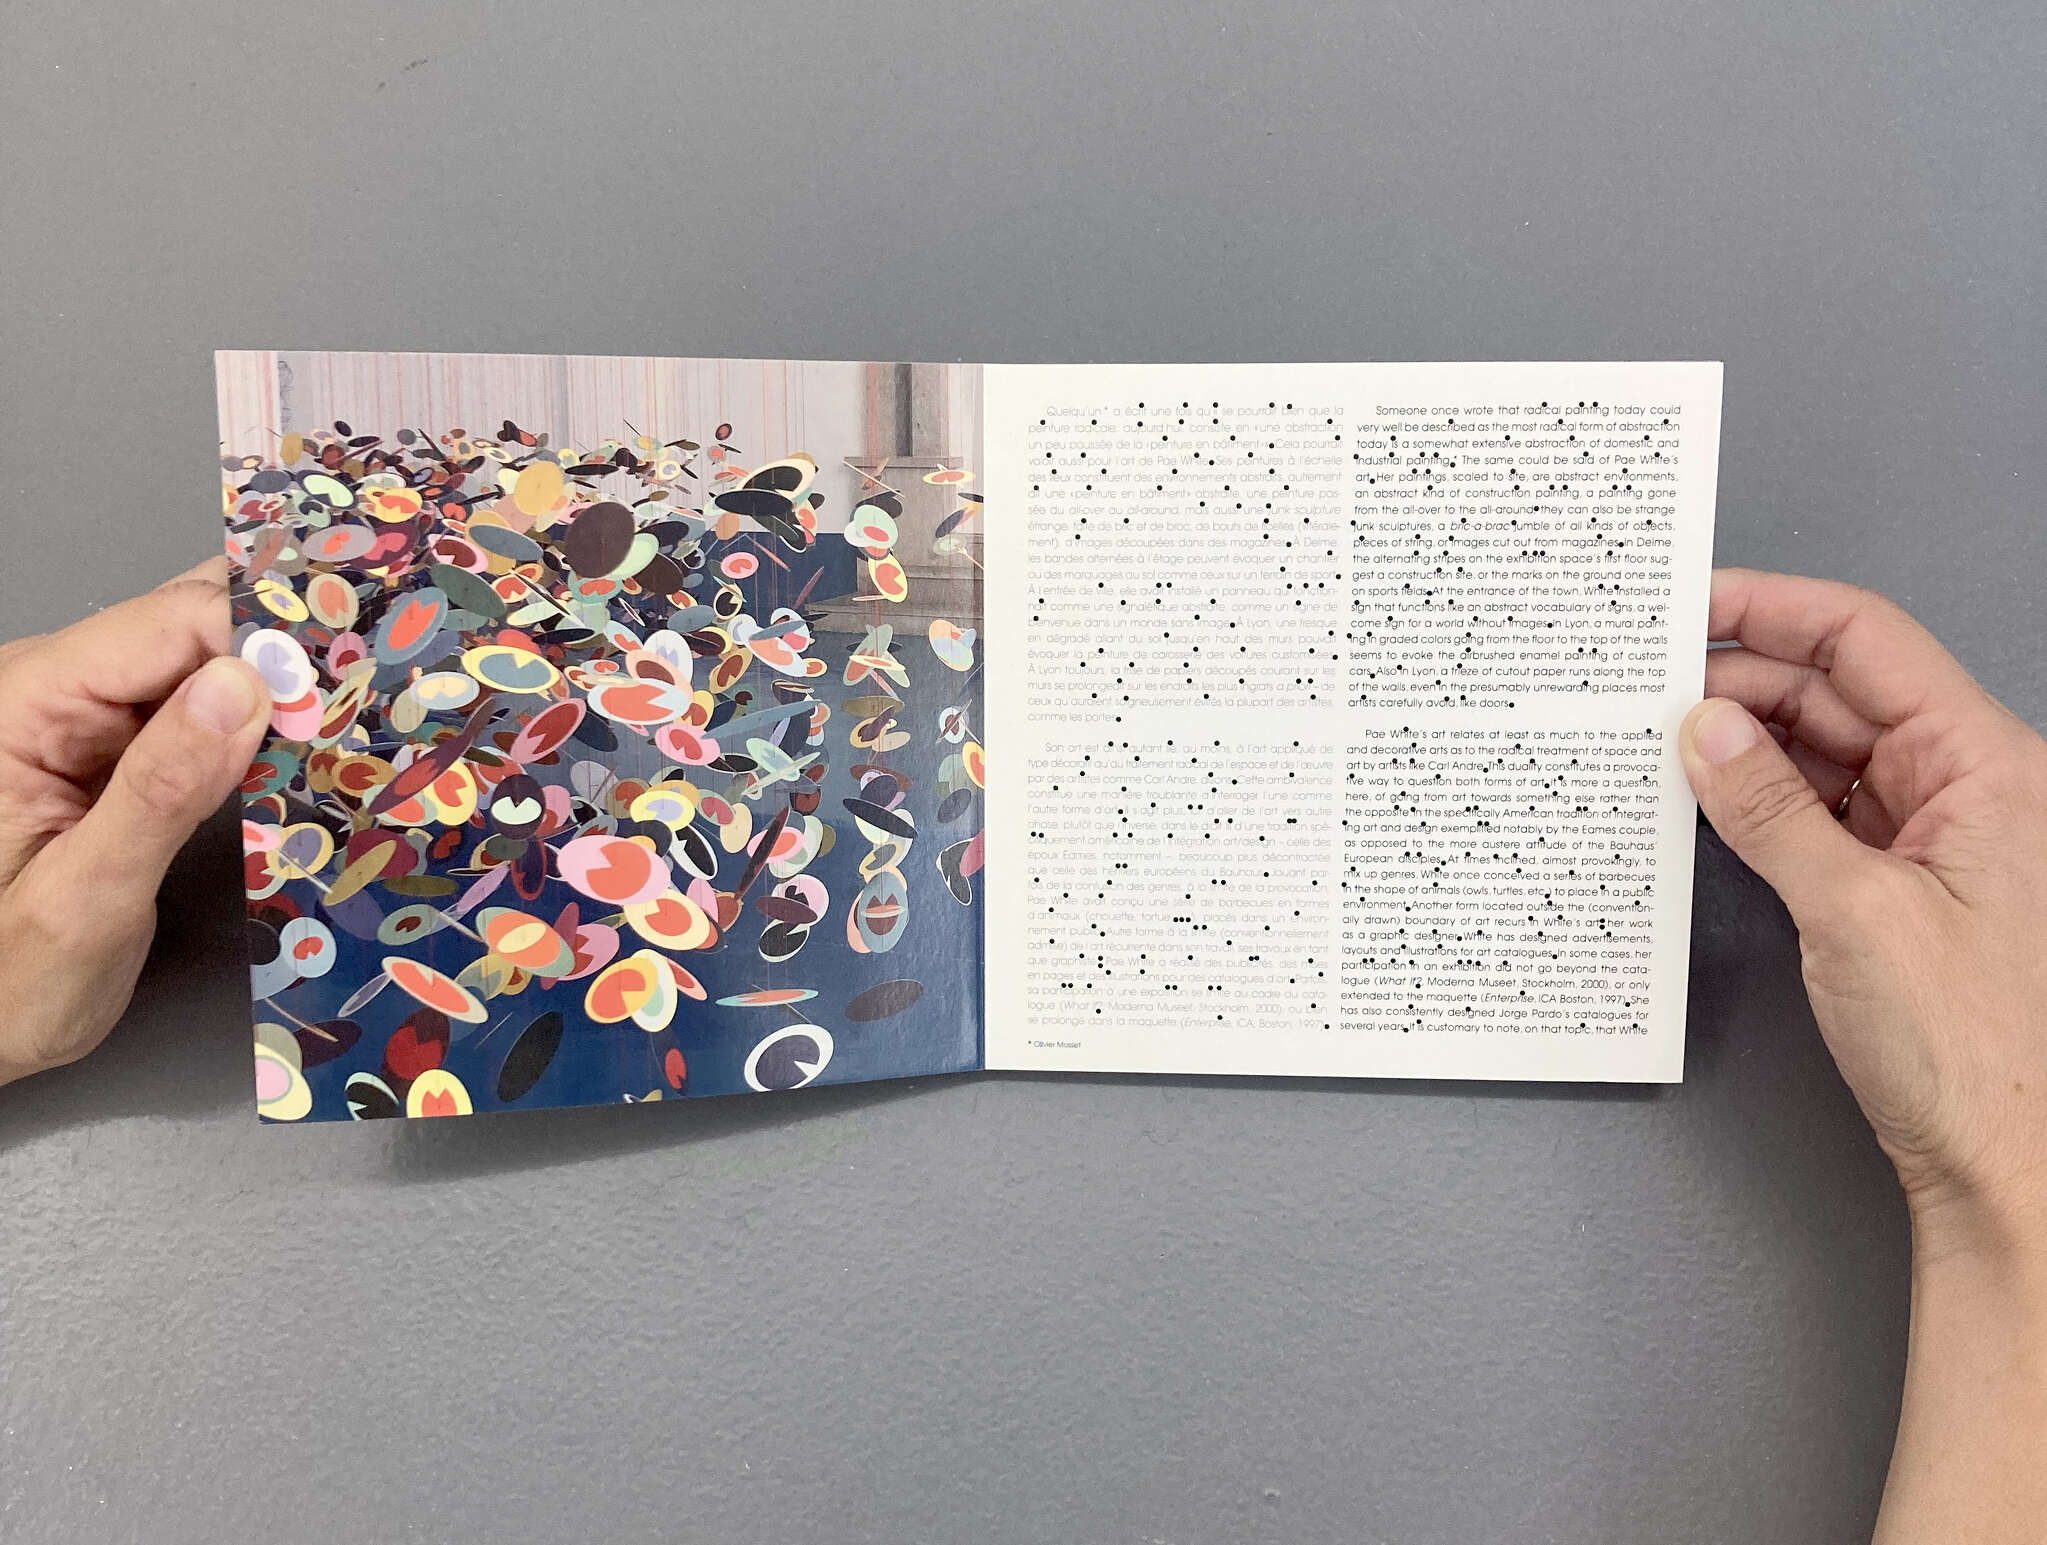 Quelqu'un* a écrit une fois qu'il se pourrait bien que la
peinture radicale, aujourd'hui, consiste en «une abstraction
un peu poussée de la «peinture en bâtiment»». Cela pourrait
valoir aussi pour l'art de Pae White. Ses peintures à l'échelle
des lieux constituent des environnements abstraits, autrement
dit une «peinture en bâtiment» abstraite, une peinture pas-
sée du all-over au all-around, mais aussi une junk sculpture
étrange, faite de bric et de broc, de bouts de ficelles (littérale-
ment), d'images découpées dans des magazines. À Delme,
les bandes alternées à l'étage peuvent évoquer un chantier
ou des marquages au sol comme ceux sur un terrain de sport.
À l'entrée de ville, elle avait installé un panneau qui fonction-
nait comme une signalétique abstraite, comme un signe de
bienvenue dans un monde sans image. À Lyon, une fresque
en dégradé allant du sol jusqu'en haut des murs pouvait
évoquer la peinture de carosserie des voitures customisées.
À Lyon toujours, la frise de papiers découpés courant sur les
murs se prolongeait sur les endroits les plus ingrats a priori – de
ceux qu'auraient soigneusement évités la plupart des artistes,
comme les portes.
Son art est lié, autant au moins, à l'art appliqué de
type décoratif qu'au traitement radical de l'espace et de l'œuvre
par des artistes comme Carl Andre, disons. Cette ambivalence
constitue une manière troublante d'interroger l'une comme
l'autre forme d'art. Il s'agit plus, ici, d'aller de l'art vers autre
chose, plutôt que l'inverse, dans le droit fil d'une tradition spé-
cifiquement américaine de l'intégration art/design – celle des
époux Eames, notamment – beaucoup plus décontractée
que celle des héritiers européens du Bauhaus. Jouant par-
fois de la confusion des genres, à la limite de la provocation,
Pae White avait conçu une série de barbecues en formes
d'animaux (chouette, tortue...), placés dans un environ-
nement public. Autre forme à la limite (conventionnellement
admise) de l'art récurrente dans son travail, ses travaux en tant
que graphiste: Pae White a réalisé des publicités, des mises
en pages et des illustrations pour des catalogues d'art. Parfois,
sa participation à une exposition se limite au cadre du cata-
logue (What If?, Moderna Museet, Stockholm, 2000), ou bien
se prolonge dans la maquette (Enterprise, ICA, Boston, 1997).
* Olivier Mosset
Someone once wrote that radical painting today could
very well be described as the most radical form of abstraction
today is a somewhat extensive abstraction of domestic and
industrial painting.* The same could be said of Pae White's
art. Her paintings, scaled to site, are abstract environments,
an abstract kind of construction painting, a painting gone
from the all-over to the all-around; they can also be strange
junk sculptures, a bric-a-brac jumble of all kinds of objects,
pieces of string, or images cut out from magazines. In Delme,
the alternating stripes on the exhibition space's first floor sug-
gest a construction site, or the marks on the ground one sees
on sports fields. At the entrance of the town, White installed a
sign that functions like an abstract vocabulary of signs, a wel-
come sign for a world without images. In Lyon, a mural paint-
ing in graded colors going from the floor to the top of the walls
seems to evoke the airbrushed enamel painting of custom
cars. Also in Lyon, a frieze of cutout paper runs along the top
of the walls, even in the presumably unrewarding places most
artists carefully avoid, like doors.
Pae White's art relates at least as much to the applied
and decorative arts as to the radical treatment of space and
art by artists like Carl Andre. This duality constitutes a provoca-
tive way to question both forms of art. It is more a question,
here, of going from art towards something else rather than
the opposite. In the specifically American tradition of integrat-
ing art and design exemplified notably by the Eames couple,
as opposed to the more austere attitude of the Bauhaus'
European disciples. At times inclined, almost provokingly, to
mix up genres, White once conceived a series of barbecues
in the shape of animals (owls, turtles, etc.) to place in a public
environment. Another form located outside the (convention-
ally drawn) boundary of art recurs in White's art: her work
as a graphic designer. White has designed advertisements,
layouts and illustrations for art catalogues. In some cases, her
participation in an exhibition did not go beyond the cata-
logue (What If?, Moderna Museet, Stockholm, 2000), or only
extended to the maquette (Enterprise, ICA Boston, 1997). She
has also consistently designed Jorge Pardo's catalogues for
several years. It is customary to note, on that topic, that White